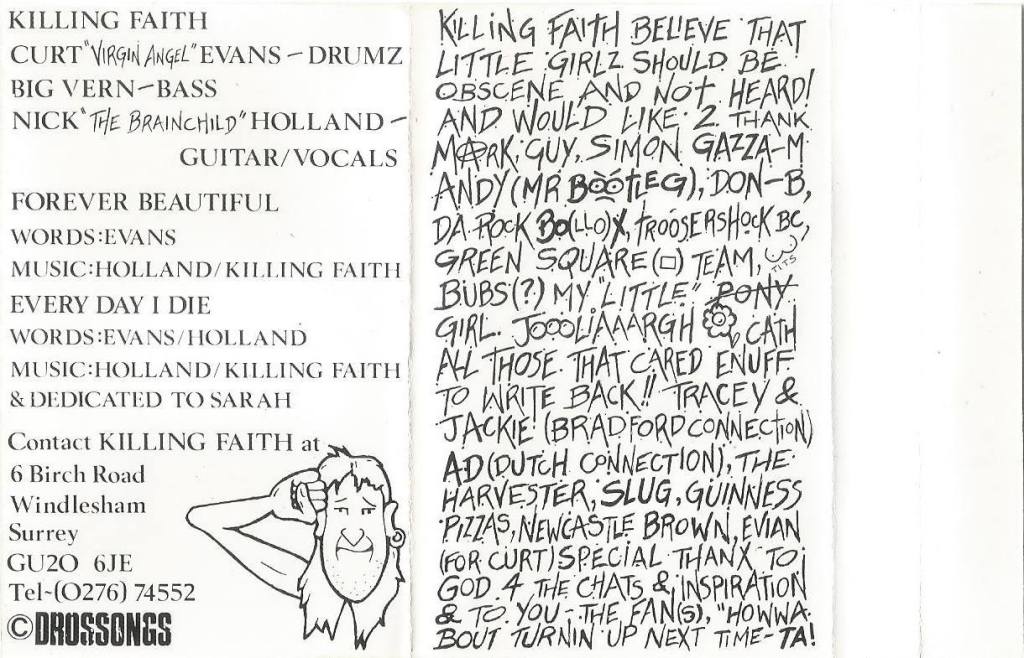 KILLING FAITH
CURT "VIRGIN ANGEL" EVANS - DRUMZ
BIG VERN - BASS
NICK "THE BRAINCHILD" HOLLAND -
GUITAR/VOCALS
FOREVER BEAUTIFUL
WORDS:EVANS
MUSIC:HOLLAND/KILLING FAITH
EVERY DAY I DIE
WORDS:EVANS/HOLLAND
MUSIC:HOLLAND/KILLING FAITH
& DEDICATED TO SARAH
Contact KILLING FAITH at
6 Birch Road
Windlesham
Surrey
GU20 6JE
Tel~(0276) 74552
© DROSSONGS
KILLING FAITH BELIEVE THAT
LITTLE GIRLZ SHOULD BE
OBSCENE AND NOT HEARD!
AND WOULD LIKE 2 THANK
MARK, GUY, SIMON GAZZA-M
ANDY (MR BOOTLEG), DON-B,
DA ROCK BO(LLO)X, TROOSERSHOCK BC,
GREEN SQUARE (□) TEAM, TITS
BUBS (?) MY "LITTLE" PONY
GIRL. JOOOLIAAARGH CATH
ALL THOSE THAT CARED ENUFF
TO WRITE BACK!! TRACEY &
JACKIE! (BRADFORD CONNECTION)
AD (DUTCH CONNECTION), THE
HARVESTER, SLUG, GUINNESS
PIZZAS, NEWCASTLE BROWN, EVIAN
(FOR CURT) SPECIAL THANX TO
GOD 4 THE CHATS & INSPIRATION
& TO YOU - THE FAN(S), "HOWWA
BOUT TURNIN' UP NEXT TIME - TA!